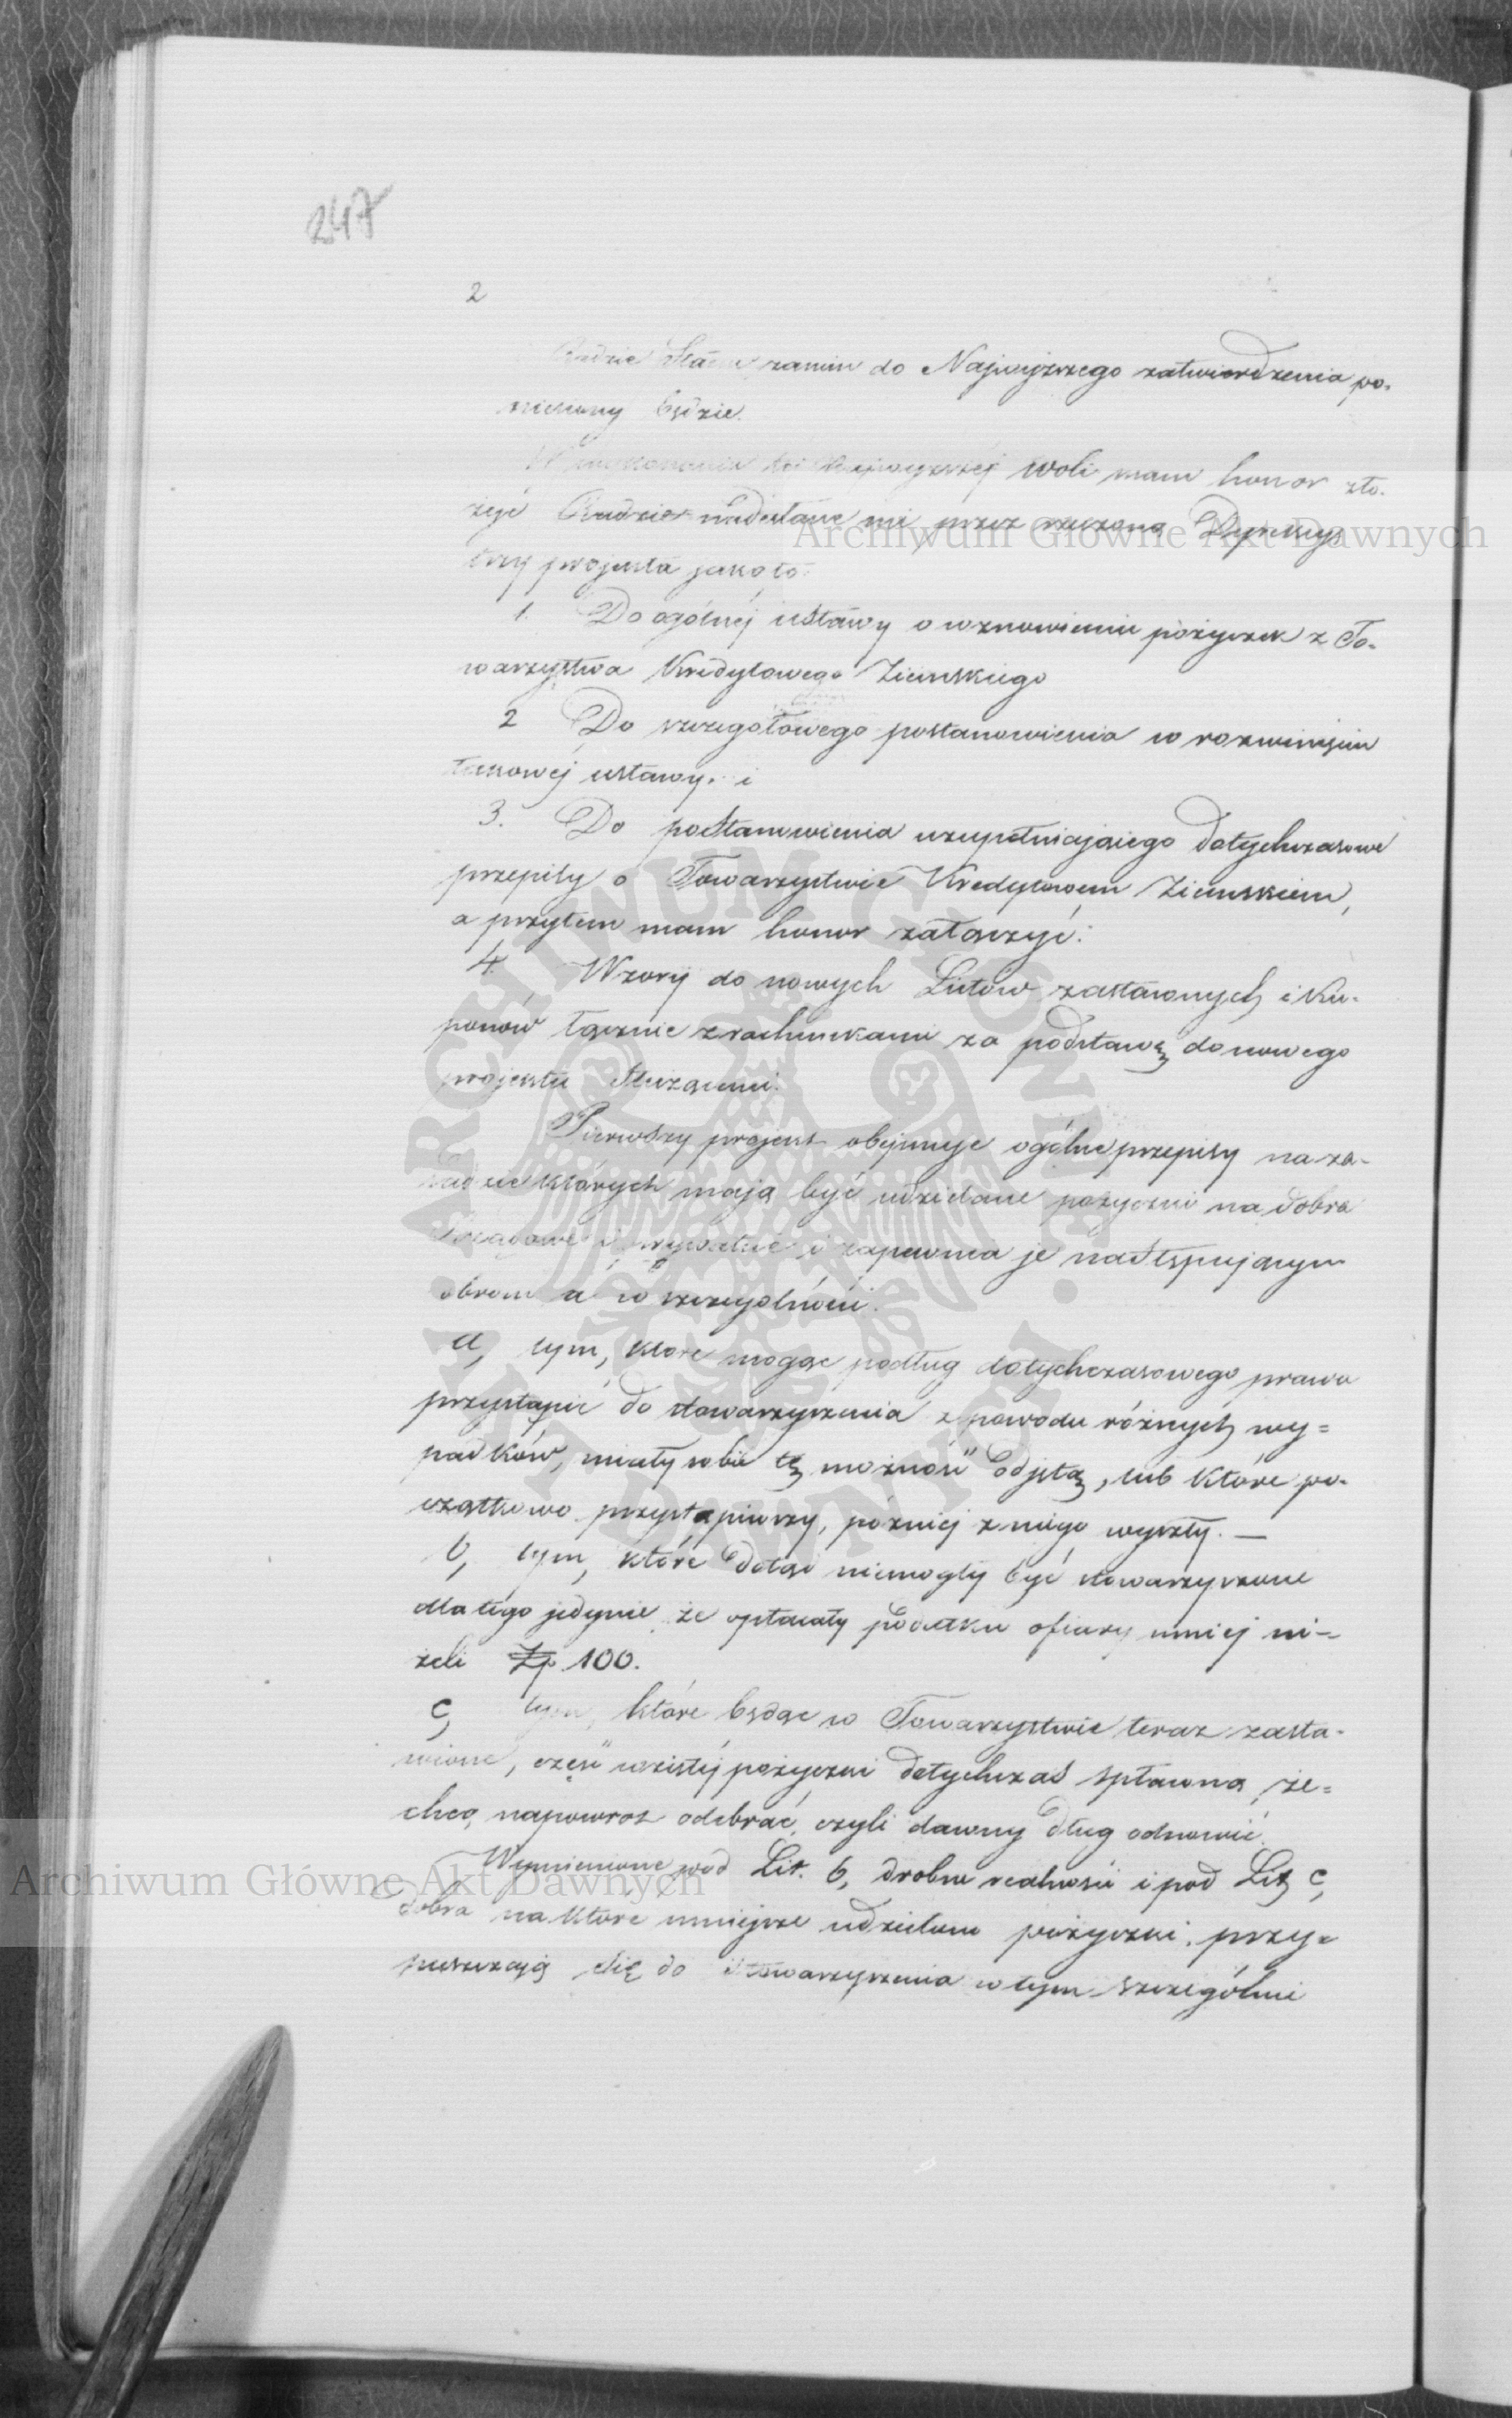 247
2
Radzie Stanu zanim do Najwyższego zatwierdzenia po-
niesiony będzie.
W wykonaniu téj Najwyższéj woli mam honor zło-
żyć Radzie nadesłane mi przez rzeczoną Dyrekcyę
trzy projekta jakoto:
1. Do ogólnéj ustawy o wznowieniu pożyczek z To-
warzystwa Kredytowego Ziemskiego
2 Do szczegółowego postanowienia w rozwinięciu
takowéj ustawy. i
3. Do postanowienia uzupełniającego dotychczasowe
przepisy o Towarzystwie Kredytowem Ziemskiem,
a przytem mam honor załączyć:
4. Wzory do nowych Listów zastawnych i Ku-
ponów łącznie z rachunkami za podstawę do nowego
projektu służącemi.
Pierwszy projekt obejmuje ogólne przepisy na za-
sadzie których mają być udzielane pożyczki na dobra
Rządowe i prywatne i zapewnia je następującym
dobrom a w szczególności:
a, tym, które mogąc podług dotychczasowego prawa
przystąpić do stowarzyszenia z powodu różnych wy=
padków, miały sobie tę możność odjętą, lub które po-
czątkowo przystąpiwszy, później z niego wyszły. —
b, tym, które dotąd niemogły być stowarzyszone
dla tego jedynie, że opłacały podatku ofiary mniej ni-
żeli Zp 100.
c, tym, które będąc w Towarzystwie teraz zasta-
wione, część wziętéj pożyczki dotychczas spłaconą, ze=
chcą napowrót odebrać, czyli dawny dług odnowić.
Wymienione pod Lit. b, drobne realności i pod Lit. c,
dobra na które mniejsze udzielone pożyczki, przy=
puszczają się do Stowarzyszenia w tym szczególnie
Archiwum Główne Akt Dawnych
Archiwum Główne Akt Dawnych
ARCHIWUM GŁÓWNE AKT DAWNYCH